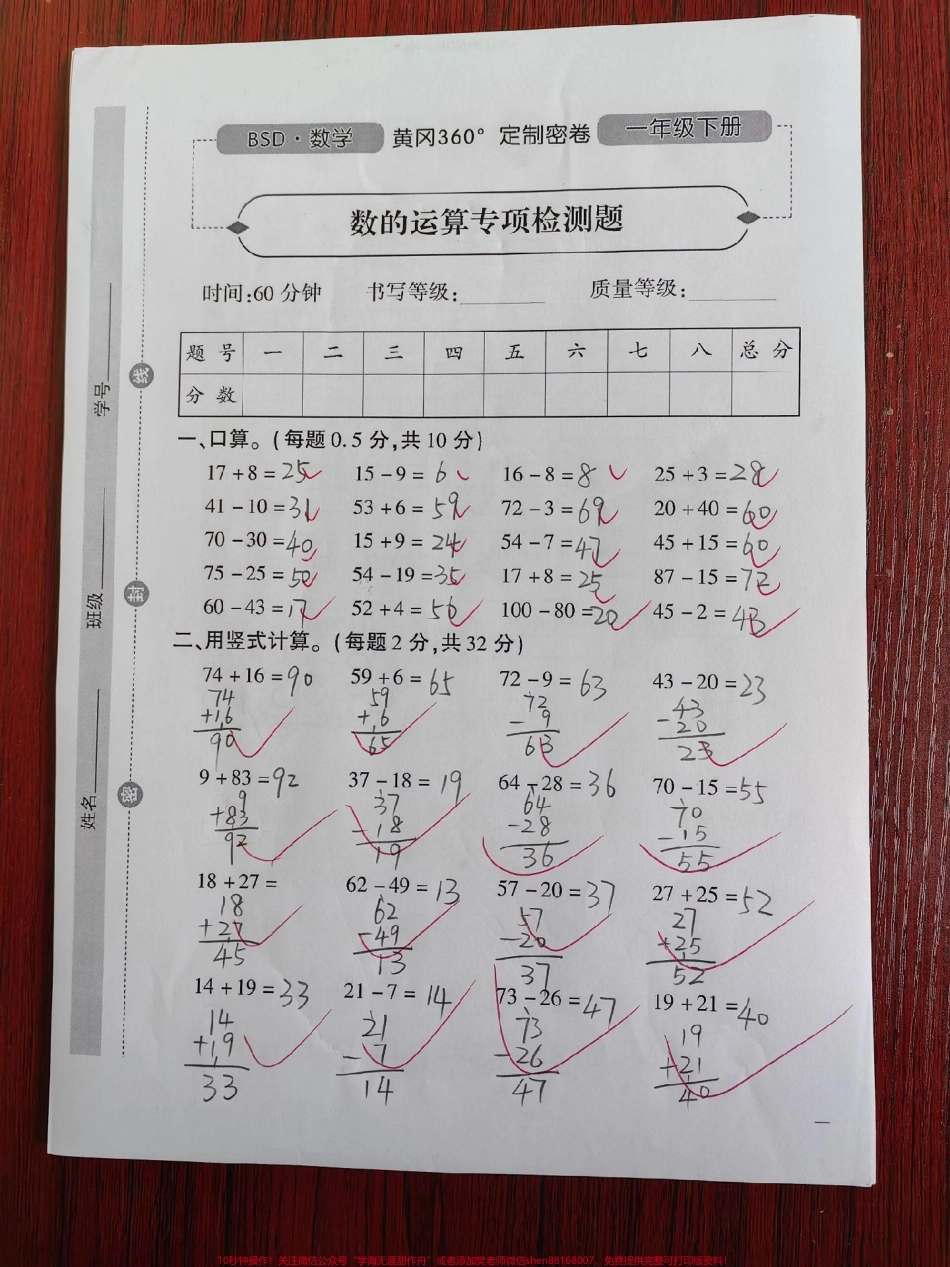 BSD·数学 黄冈360°定制密卷 一年级下册
数的运算专项检测题
时间:60分钟 书写等级:________ 质量等级:________
题号 一 二 三 四 五 六 七 八 总分
分数
学号________
班级________
姓名________
线
封
密
一、口算。(每题0.5分,共10分)
17+8=25 15-9=6 16-8=8 25+3=28
41-10=31 53+6=59 72-3=69 20+40=60
70-30=40 15+9=24 54-7=47 45+15=60
75-25=50 54-19=35 17+8=25 87-15=72
60-43=17 52+4=56 100-80=20 45-2=43
二、用竖式计算。(每题2分,共32分)
74+16=90 59+6=65 72-9=63 43-20=23
74 59 72 43
+16 +6 -9 -20
90 65 63 23
9+83=92 37-18=19 64-28=36 70-15=55
9 37 64 70
+83 -18 -28 -15
92 19 36 55
18+27= 62-49=13 57-20=37 27+25=52
18 62 57 27
+27 -49 -20 +25
45 13 37 52
14+19=33 21-7=14 73-26=47 19+21=40
14 21 73 19
+19 -7 -26 +21
33 14 47 40
一
10秒钟操作!关注微信公众号“学海无涯甜作舟”或者添加吴老师微信shen88168007，免费提供完整可打印版资料!